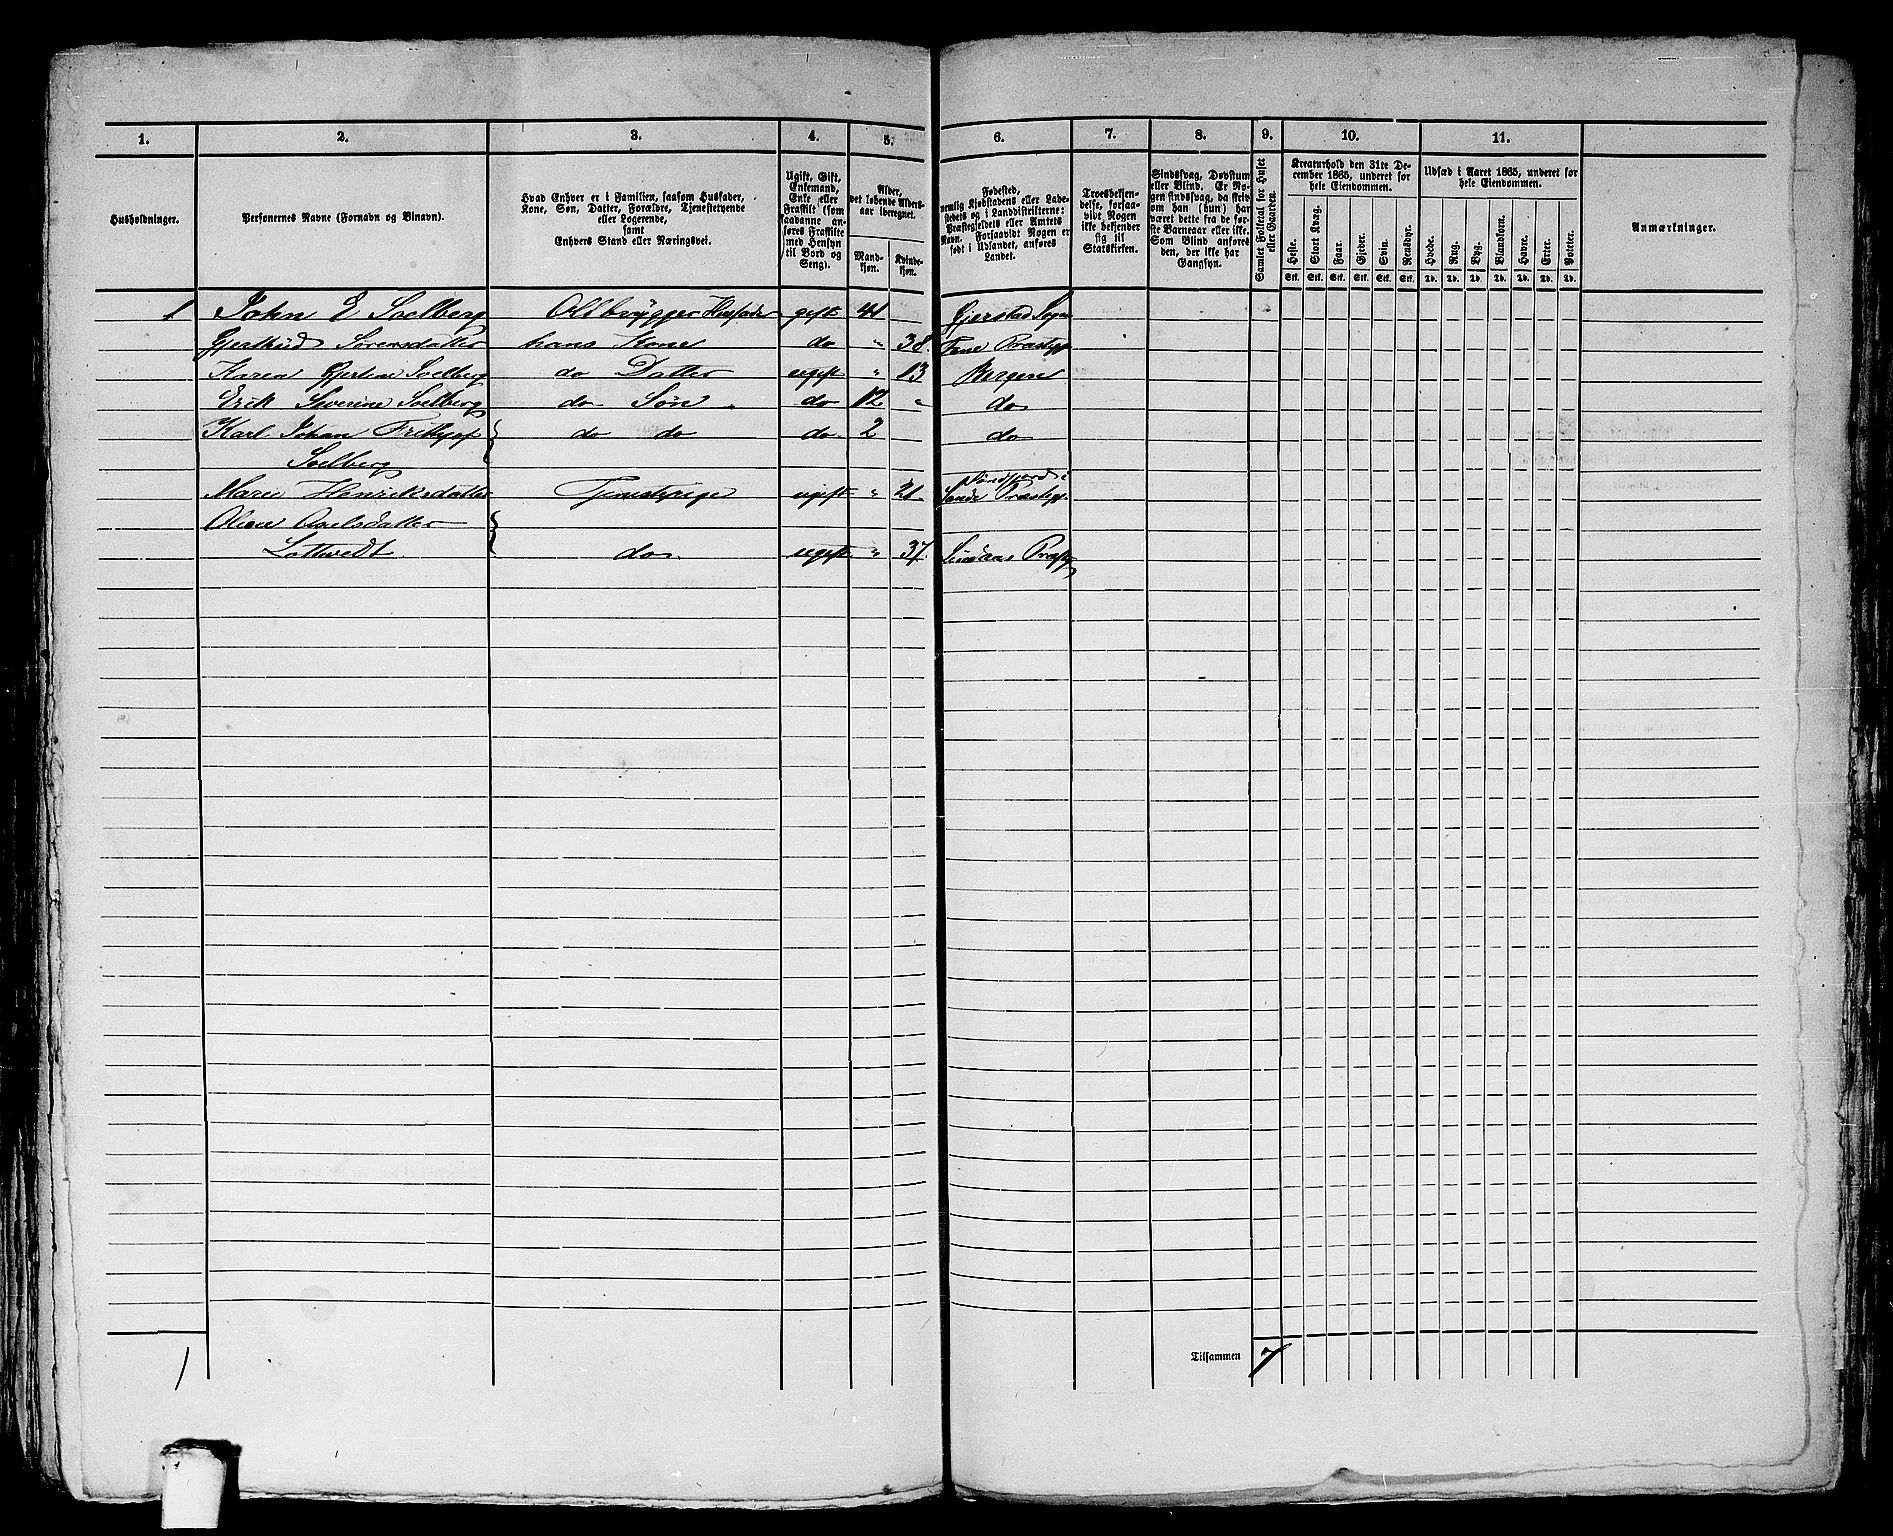 1. 2. 3. 4. 5. 6. 7. 8. 9. 10. 11.
Husholdninger.
Personernes Navne (Fornavn og Binavn).
Hvad Enhver er i Familien, saasom Husfader,
Kone, Søn, Datter, Forældre, Tjenestetyende
eller Logerende,
samt
Enhvers Stand eller Næringsvei.
Ugift, Gift,
Enkemand,
Enke eller
Fraskilt (som
saadanne an-
føres Fraskilte
med Hensyn
til Bord og
Seng).
Alder,
det løbende Alders-
aar iberegnet.
Mand-
kjøn.
Kvinde-
kjøn.
Fødested,
nemlig Kjøbstadens eller Lade-
stedets og i Landdistrikterne:
Præstegjeldets eller Amtets
Navn. Forsaavidt Nogen er
født i Udlandet, anføres
Landet.
Troesbekjen-
delse, forsaa-
vidt Nogen
ikke bekjender
sig til
Statskirken.
Sindssvag, Døvstum
eller Blind. Er No-
gen sindssvag, da skriv
om han (hun) har
været dette fra de før-
ste Barneaar eller ikke.
Som Blind anføres
den, der ikke har
Gangsyn.
Samlet Folketal for Huset
eller Gaarden.
Kreaturhold den 31te De-
cember 1865, underet for
hele Eiendommen.
Heste. Stort Kvæg. Faar. Gjeder. Svin. Rensdyr.
Stk. Stk. Stk. Stk. Stk. Stk.
Udsæd i Aaret 1865, underet for
hele Eiendommen.
Hvede. Rug. Byg. Blandkorn. Havre. Erter. Poteter.
Td. Td. Td. Td. Td. Td. Td.
Anmærkninger.
1 John E Soelberg Ølbrygger Husfader gift 41 Gjerstad Sogn
Gjertrud Sørensdatter hans Kone do " 38. Fane Præstgj
Karen Gjertine Soelberg do Datter ugift " 13 Bergen
Erik Severine Soelberg do Søn do 12 " do
Karl Johan Frithjof do do do 2 do
Soelberg
Marie Henriksdatter Tjenestepige ugift " 21 Søndfjord i Sande Præstgj.
Axelsdatter
do ugift " 37. Lindaas Præstgj
1
Tilsammen 7